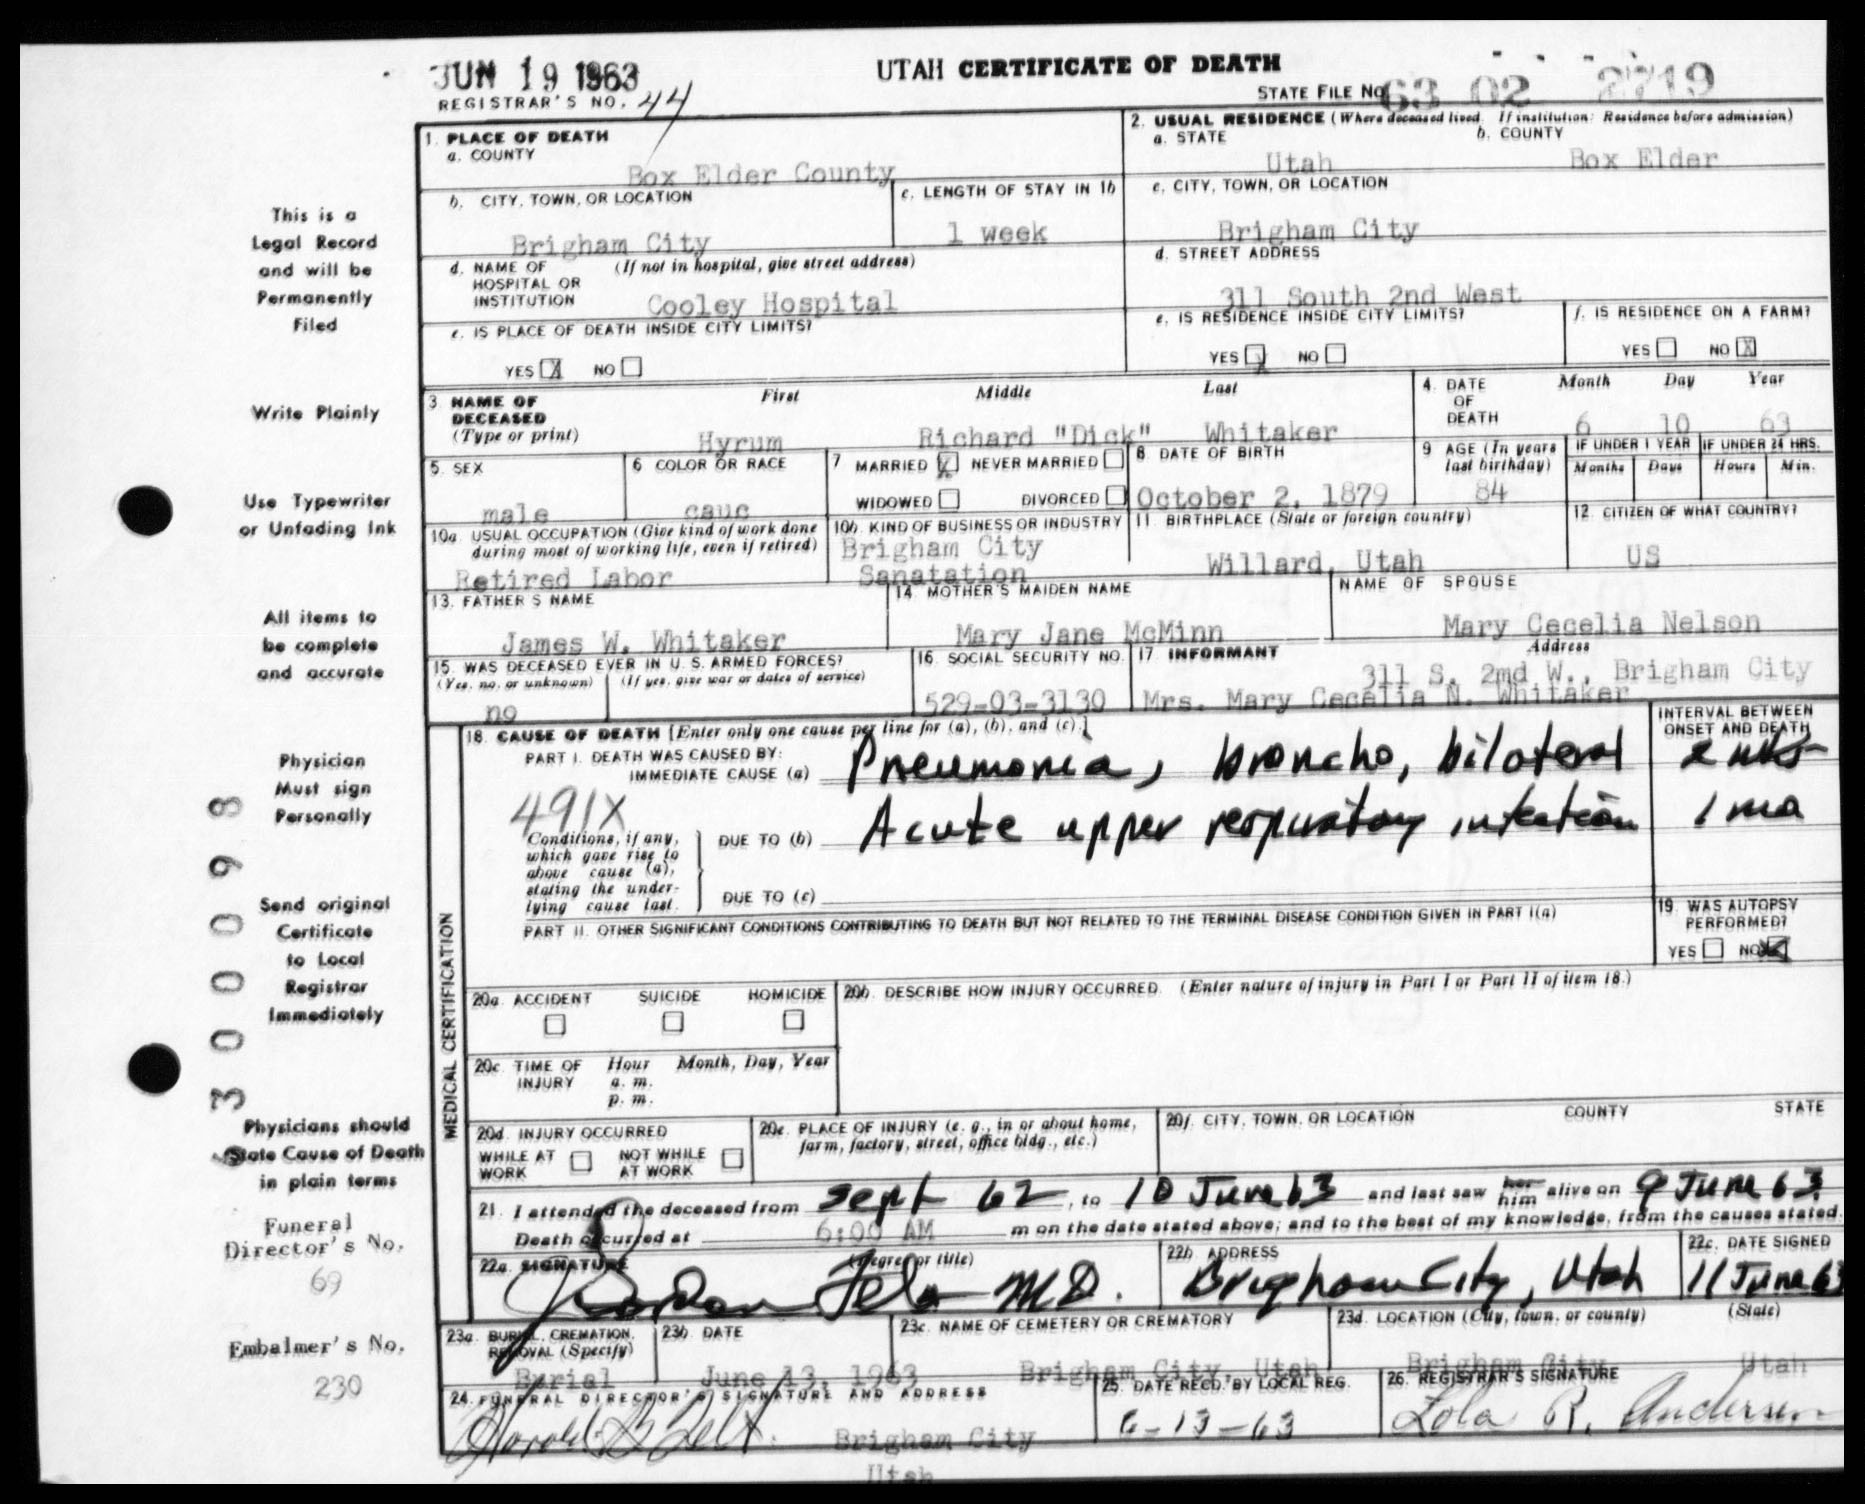 JUN 19 1963
UTAH CERTIFICATE OF DEATH
REGISTRAR'S NO. 44
STATE FILE NO. 63 02 2719
1. PLACE OF DEATH
a. COUNTY
Box Elder County
2. USUAL RESIDENCE (Where deceased lived. If institution: Residence before admission)
a. STATE b. COUNTY
Utah Box Elder
b. CITY, TOWN, OR LOCATION
Brigham City
c. LENGTH OF STAY IN 1b
1 week
c. CITY, TOWN, OR LOCATION
Brigham City
d. NAME OF HOSPITAL OR INSTITUTION (If not in hospital, give street address)
Cooley Hospital
d. STREET ADDRESS
311 South 2nd West
e. IS PLACE OF DEATH INSIDE CITY LIMITS?
YES X NO
e. IS RESIDENCE INSIDE CITY LIMITS?
YES X NO
f. IS RESIDENCE ON A FARM?
YES NO X
3. NAME OF DECEASED (Type or print)
First Middle Last
Hyrum Richard "Dick" Whitaker
4. DATE OF DEATH
Month Day Year
6 10 63
5. SEX
male
6 COLOR OR RACE
cauc
7 MARRIED X NEVER MARRIED
WIDOWED DIVORCED
8. DATE OF BIRTH
October 2, 1879
9 AGE (In years last birthday)
84
IF UNDER 1 YEAR IF UNDER 24 HRS.
Months Days Hours Min.
10a. USUAL OCCUPATION (Give kind of work done during most of working life, even if retired)
Retired Labor
10b. KIND OF BUSINESS OR INDUSTRY
Brigham City
Sanatation
11. BIRTHPLACE (State or foreign country)
Willard, Utah
12. CITIZEN OF WHAT COUNTRY?
US
13. FATHER'S NAME
James W. Whitaker
14. MOTHER'S MAIDEN NAME
Mary Jane McMinn
NAME OF SPOUSE
Mary Cecelia Nelson
15. WAS DECEASED EVER IN U. S. ARMED FORCES?
(Yes, no, or unknown) (If yes, give war or dates of service)
no
16. SOCIAL SECURITY NO.
529-03-3130
17. INFORMANT Address
311 S. 2md W., Brigham City
Mrs. Mary Cecelia N. Whitaker
MEDICAL CERTIFICATION
18. CAUSE OF DEATH [Enter only one cause per line for (a), (b), and (c).]
INTERVAL BETWEEN ONSET AND DEATH
PART I. DEATH WAS CAUSED BY:
IMMEDIATE CAUSE (a) Pneumonia, broncho, bilateral 2 wks
491X
Conditions, if any, which gave rise to above cause (a), stating the underlying cause last.
DUE TO (b) Acute upper respiratory infection 1 mo
DUE TO (c)
PART II. OTHER SIGNIFICANT CONDITIONS CONTRIBUTING TO DEATH BUT NOT RELATED TO THE TERMINAL DISEASE CONDITION GIVEN IN PART I(a)
19. WAS AUTOPSY PERFORMED?
YES NO X
20a. ACCIDENT SUICIDE HOMICIDE
20b. DESCRIBE HOW INJURY OCCURRED. (Enter nature of injury in Part I or Part II of item 18.)
20c. TIME OF INJURY Hour Month, Day, Year
a. m.
p. m.
20d. INJURY OCCURRED
WHILE AT WORK NOT WHILE AT WORK
20e. PLACE OF INJURY (e. g., in or about home, farm, factory, street, office bldg., etc.)
20f. CITY, TOWN, OR LOCATION COUNTY STATE
21. I attended the deceased from Sept 62, to 10 June 63 and last saw her him alive on 9 June 63.
Death occurred at 6:00 AM m on the date stated above; and to the best of my knowledge, from the causes stated.
22a. SIGNATURE (Degree or title)
M.D.
22b. ADDRESS
Brigham City, Utah
22c. DATE SIGNED
11 June 63
23a. BURIAL, CREMATION, REMOVAL (Specify)
Burial
23b. DATE
June 13, 1963
23c. NAME OF CEMETERY OR CREMATORY
Brigham City, Utah
23d. LOCATION (City, town, or county) (State)
Brigham City Utah
24. FUNERAL DIRECTOR'S SIGNATURE AND ADDRESS
Harold B Felt.
Brigham City
Utah
25. DATE RECD. BY LOCAL REG.
6-13-63
26. REGISTRAR'S SIGNATURE
Lola R. Andersen
This is a
Legal Record
and will be
Permanently
Filed
Write Plainly
Use Typewriter
or Unfading Ink
All items to
be complete
and accurate
Physician
Must sign
Personally
Send original
Certificate
to Local
Registrar
Immediately
Physicians should
State Cause of Death
in plain terms
Funeral
Director's No.
69
Embalmer's No.
230
30098